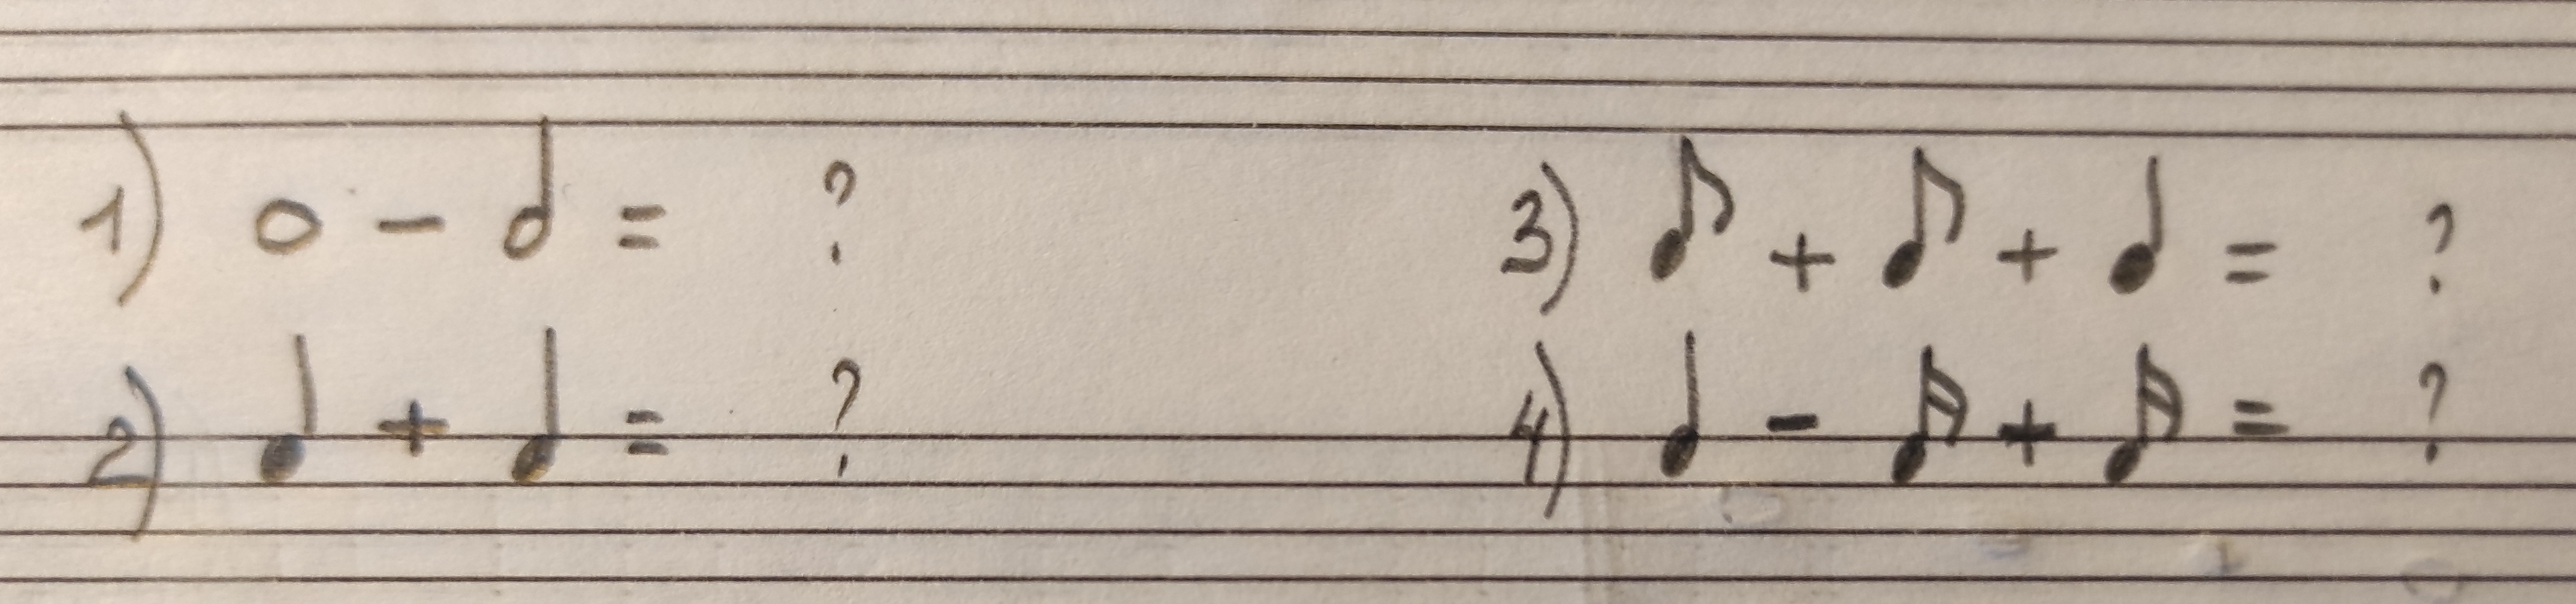 1) 𝅝 - 𝅗𝅥 = ?
2) ♩ + ♩ = ?
3) ♪ + ♪ + ♩ = ?
4) ♩ - 𝅘𝅥𝅯 + 𝅘𝅥𝅯 = ?